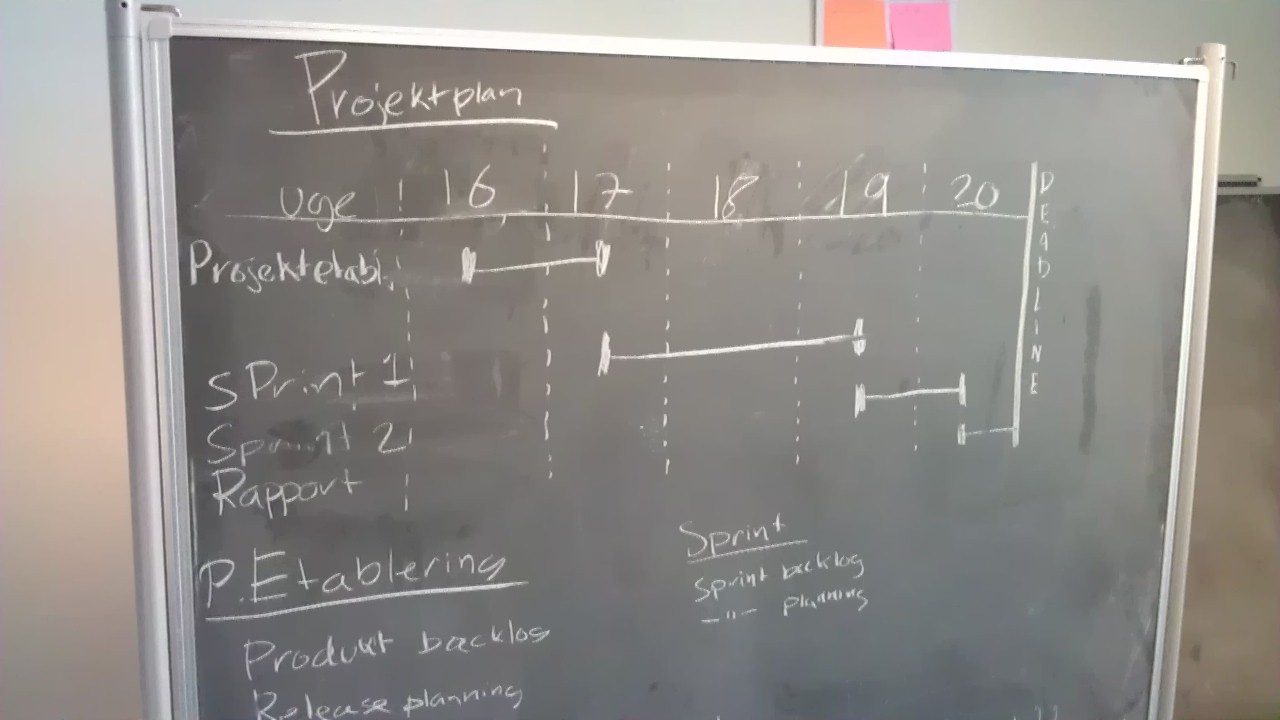 Projektplan
uge 16 17 18 19 20
DEADLINE
Projektetabl.
SPrint 1
Sprint 2
Rapport
P.Etablering
Produkt backlog
Release planning
Sprint
Sprint backlog
-"- planning